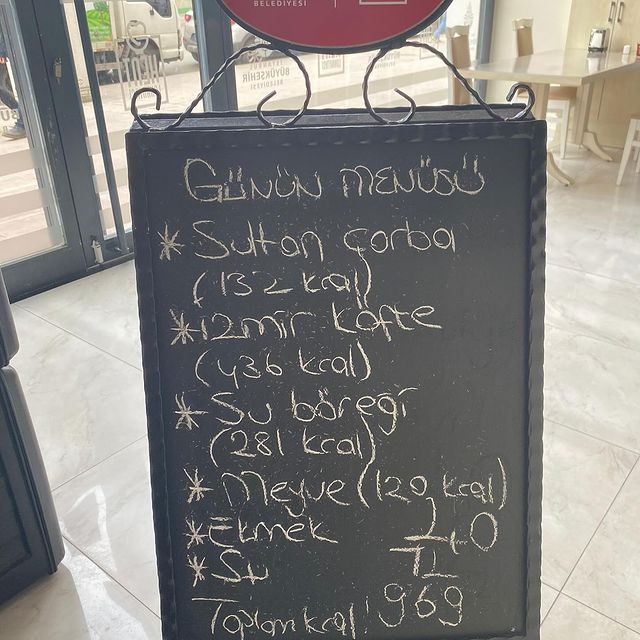 BELEDİYESİ
BÜYÜKŞEHİR
BELEDİYESİ
GÜNÜN MENÜSÜ
* Sultan çorba
(132 kcal)
* izmir köfte
(436 kcal)
* Su böreği
(281 kcal)
* Meyve (120 kcal)
* Ekmek 40
* Su TL
Toplam kcal: 969